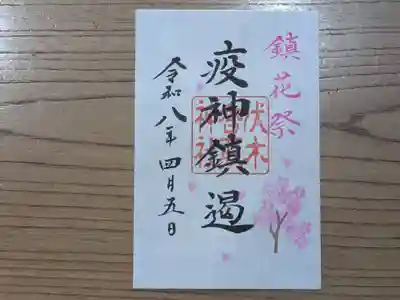 鎮花祭
疫神鎮遏
伏木
神社
令和八年四月五日